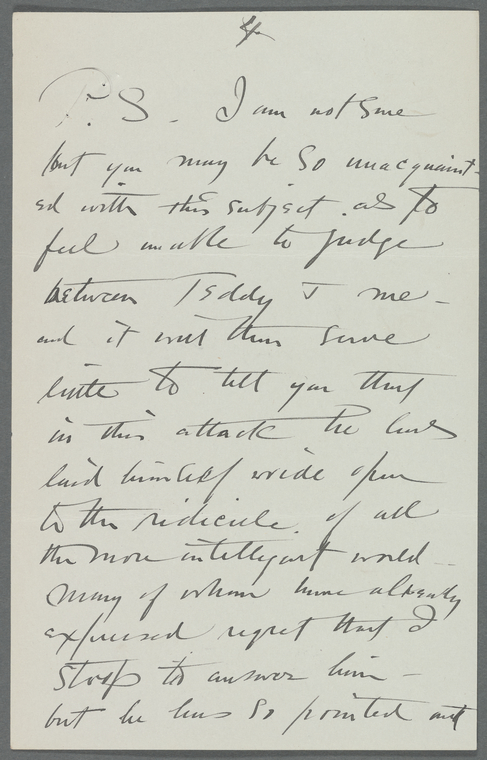 4
P.S. I am not sure
but you may be so unacquaint-
ed with this subject as to
feel unable to judge
between Teddy & me –
and it will then serve
little to tell you that
in this attack he has
laid himself wide open
to the ridicule of all
the more intelligent world –
many of whom have already
expressed regret that I
stoop to answer him –
but he has so pointed out